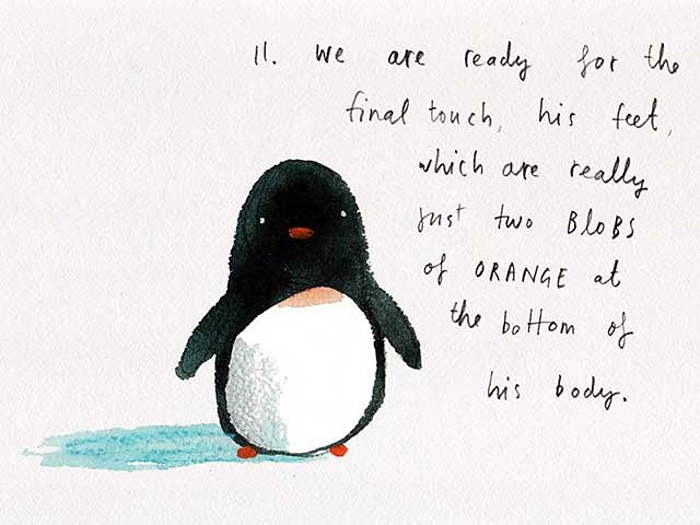 11. we are ready for the
final touch, his feet,
which are really
just two BLOBS
of ORANGE at
the bottom of
his body.